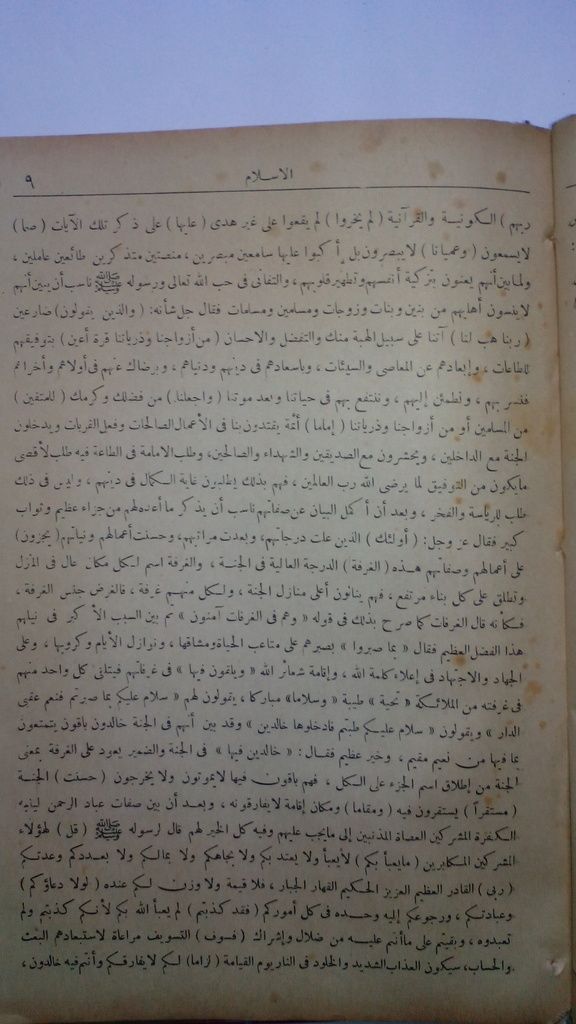 الاسلام
٩
ربهم ) الكونية والقرآنية ( لم يخروا ) لم يقعوا على غير هدى ( عليها ) على ذكر تلك الآيات ( صما )
لايسمعون ( وعميانا ) لايبصرون بل أكبوا عليها سامعين مبصرين ، منصتين متذكرين طائعين عاملين ،
ولما بين أنهم يعنون بتزكية أنفسهم وتطهير قلوبهم ، والتفانى فى حب الله تعالى ورسوله ﷺ ناسب أن يبين أنهم
لاينسون أهليهم من بنين وبنات وزوجات ومسلمين ومسلمات فقال جل شأنه : ( والذين يقولون ) ضارعين
( ربنا هب لنا ) آتنا على سبيل الهبة منك والتفضل والاحسان ( من أزواجنا وذرياتنا قرة أعين ) بتوفيقهم
للطاعات ، وإبعادهم عن المعاصى والسيئات ، وباسعادهم فى دينهم ودنياهم ، وبرضاك عنهم فى أولاهم وأخراهم
فنسر بهم ، ونطمئن إليهم ، وننتفع بهم فى حياتنا وبعد موتنا ( واجعلنا ) من فضلك وكرمك ( للمتقين )
من المسلمين أو من أزواجنا وذرياتنا ( إماما ) أئمة يقتدون بنا فى الأعمال الصالحات وفعل القربات ويدخلون
الجنة مع الداخلين ، ويحشرون مع الصديقين والشهداء والصالحين، وطلب الامامة فى الطاعة فيه طلب لأقصى
مايكون من التوفيق لما يرضى الله رب العالمين ، فهم بذلك يطلبون غاية الكمال فى دينهم ، وليس فى ذلك
طلب للرياسة والفخر ، وبعد أن أكمل البيان عن صفاتهم ناسب أن يذكر ما أعده لهم من جزاء عظيم وثواب
كبير فقال عز وجل : ( أولئك ) الذين علت درجاتهم، وبعدت مراتبهم، وحسنت أعمالهم ونياتهم ( يجزون )
على أعمالهم وصفاتهم هذه ( الغرفة ) الدرجة العالية فى الجنة ، والغرفة اسم لكل مكان عال فى المنزل
وتطلق على كل بناء مرتفع ، فهم ينالون أعلى منازل الجنة ، ولكل منهم غرفة ، فالغرض جنس الغرفة ،
فكأنه قال الغرفات كما صرح بذلك فى قوله « وهم فى الغرفات آمنون » ثم بين السبب الأكبر فى نيلهم
هذا الفضل العظيم فقال « بما صبروا » بصبرهم على متاعب الحياة ومشاقها ، ونوازل الأيام وكروبها ، وعلى
الجهاد والاجتهاد فى إعلاء كلمة الله ، وإقامة شعائر الله « ويلقون فيها » فى غرفاتهم فيتلقى كل واحد منهم
فى غرفته من الملائكة « تحية » طيبة « وسلاما » مباركا ، يقولون لهم « سلام عليكم بما صبرتم فنعم عقبى
الدار » ويقولون « سلام عليكم طبتم فادخلوها خالدين » وقد بين أنهم فى الجنة خالدون باقون يتمتعون
بما فيها من نعيم مقيم ، وخير عظيم فقال : « خالدين فيها » فى الجنة والضمير يعود على الغرفة بمعنى
الجنة من إطلاق اسم الجزء على الكل ، فهم باقون فيها لايموتون ولا يخرجون ( حسنت ) الجنة
( مستقراً ) يستقرون فيه ( ومقاما ) ومكان إقامة لايفارقونه ، وبعد أن بين صفات عباد الرحمن لينبه
الكفرة المشركين العصاة المذنبين إلى مايجب عليهم وفيه كل الخير لهم قال لرسوله ﷺ ( قل ) لهؤلاء
المشركين المكابرين ( مايعبأ بكم ) لايعبأ ولا يعتد بكم ولا بجاهكم ولا بمالكم ولا بعددكم وعدتكم
( ربى ) القادر العظيم العزيز الحكيم القهار الجبار ، فلا قيمة ولا وزن لكم عنده ( لولا دعاؤكم )
وعبادتكم ، ورجوعكم إليه وحده فى كل أموركم ( فقد كذبتم ) لم يعبأ الله بكم لأنكم كذبتم ولم
تعبدوه ، وبقيتم على ماأنتم عليه من ضلال وإشراك ( فسوف ) التسويف مراعاة لاستبعادهم البعث
والحساب، سيكون العذاب الشديد والخلود فى النار يوم القيامة ( لزاما ) لكم لايفارقكم وأنتم فيه خالدون ،